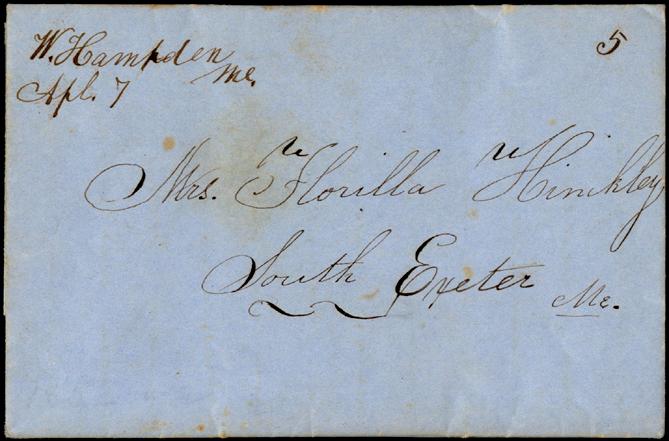 W. Hampden Me.
Apl. 7
5
Mrs. Florilla Hinkley
South Exeter Me.